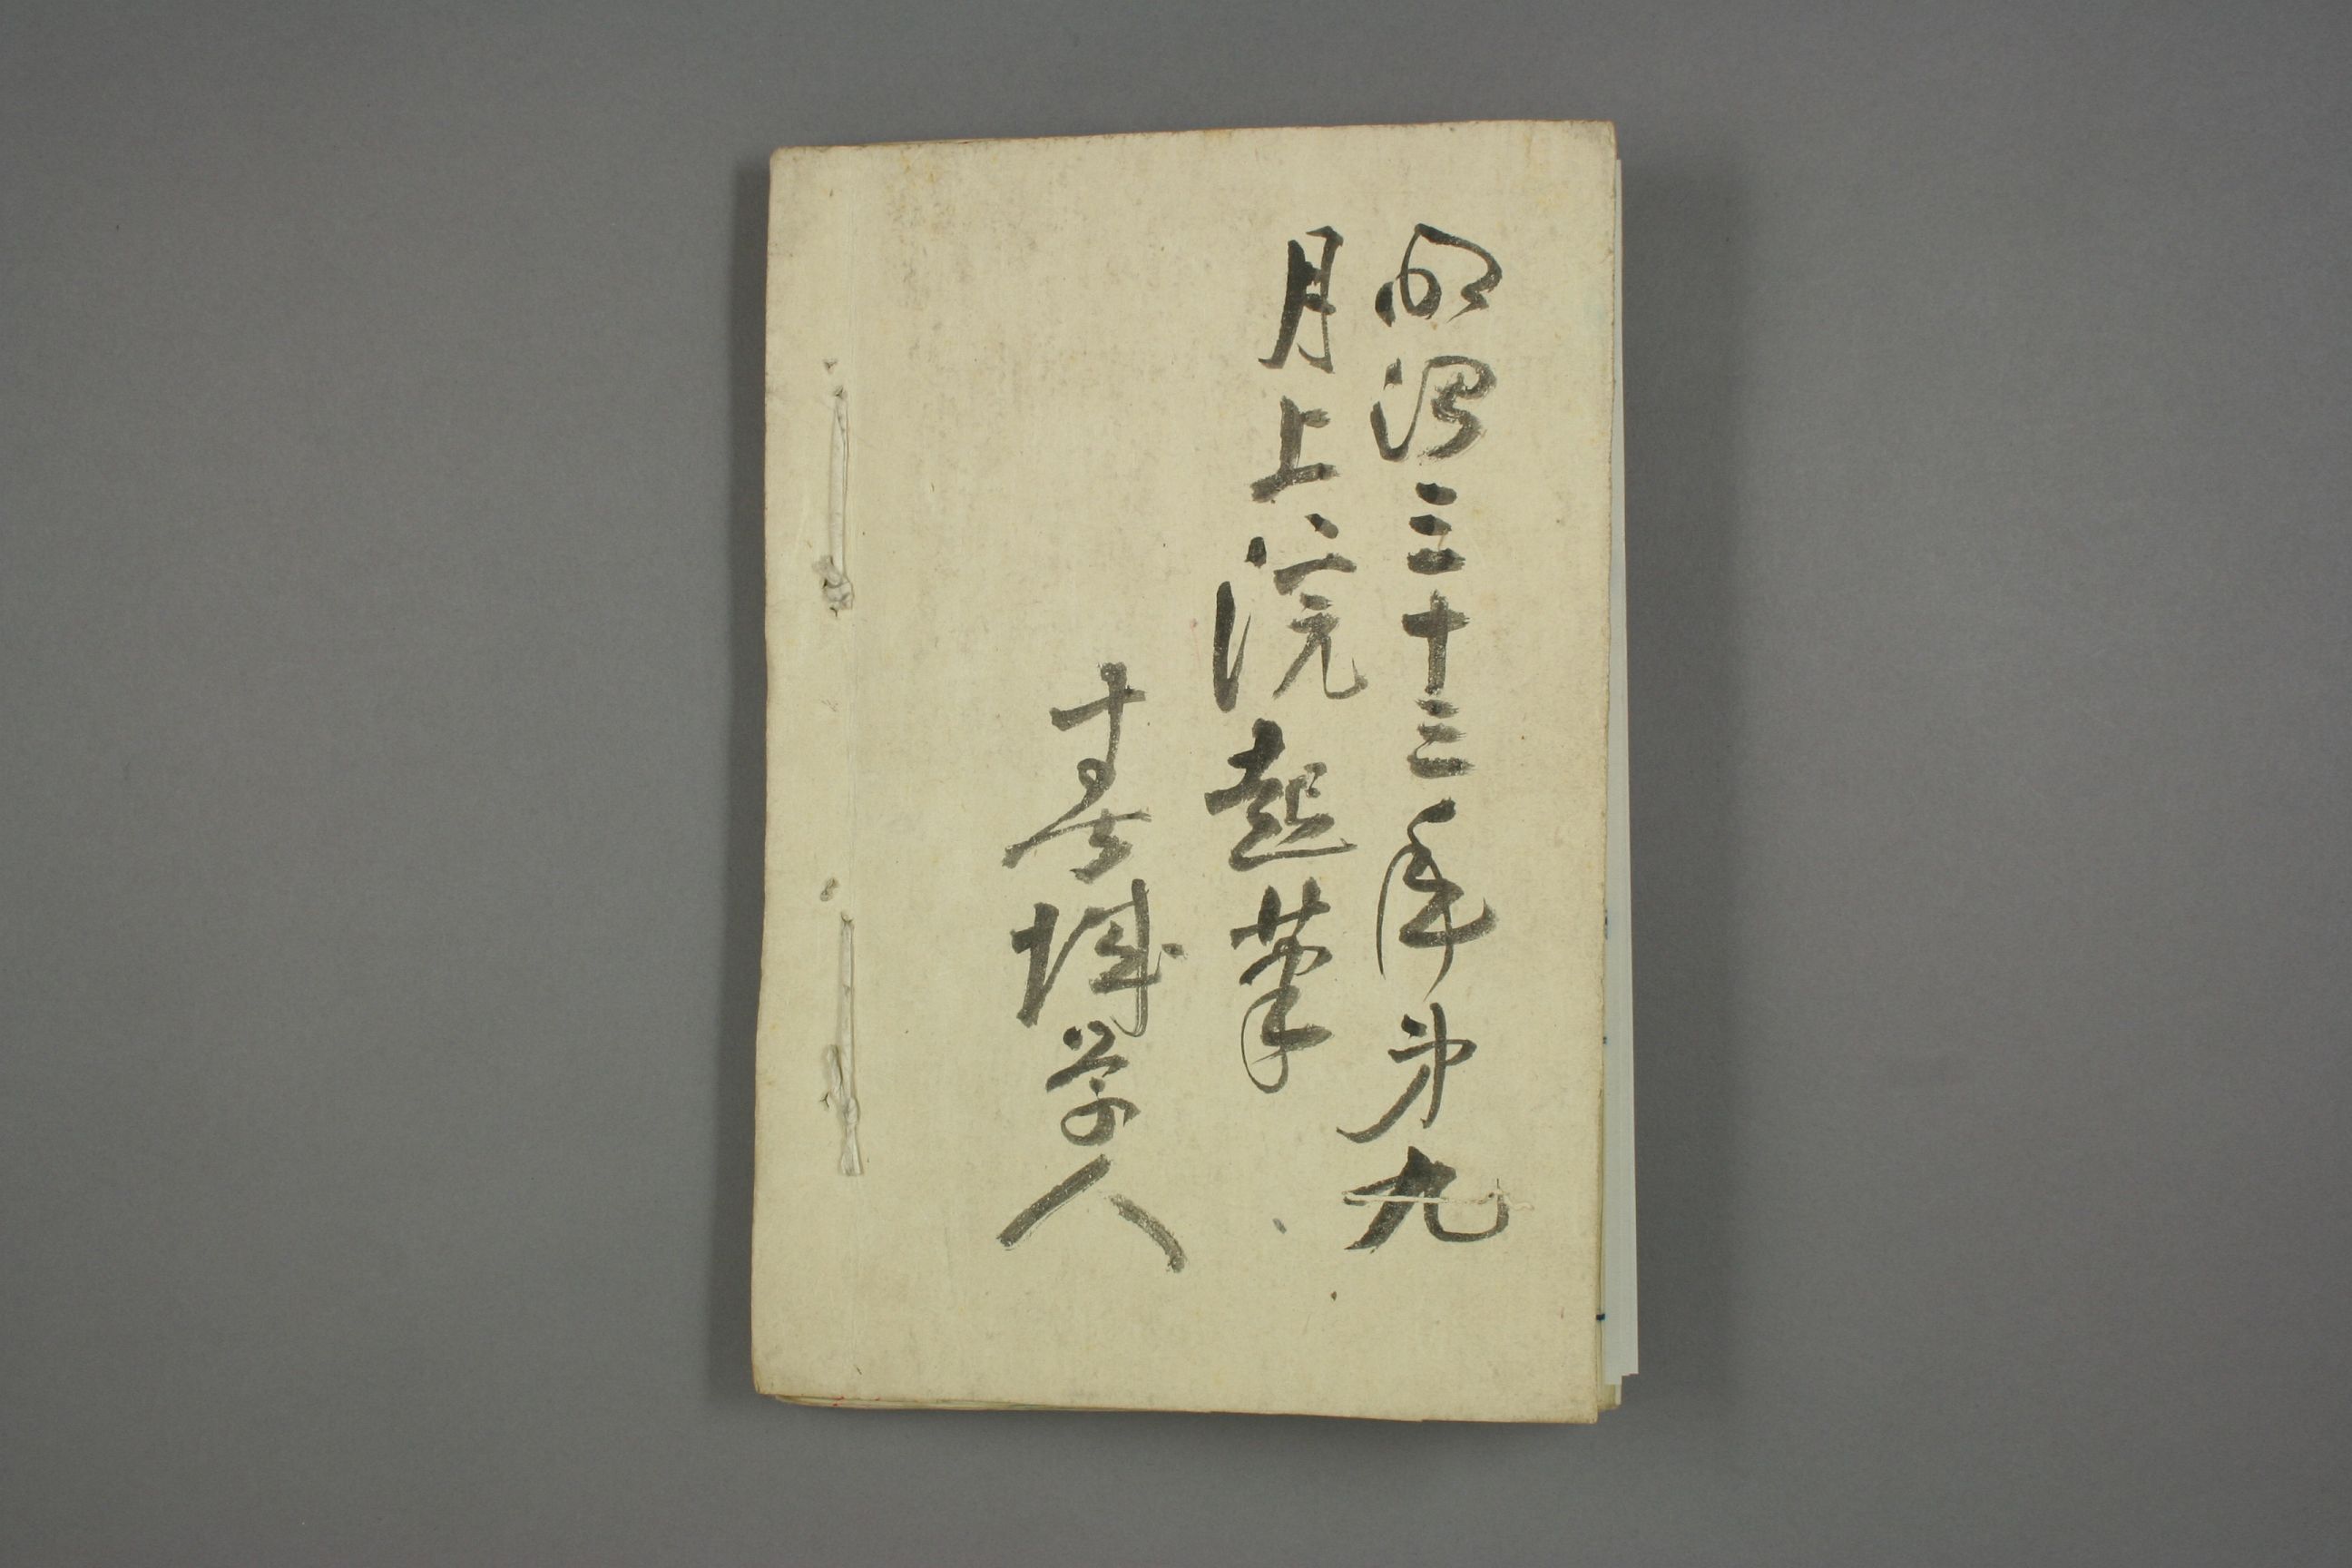 明治三十三年第九
月上浣起筆
春城学人